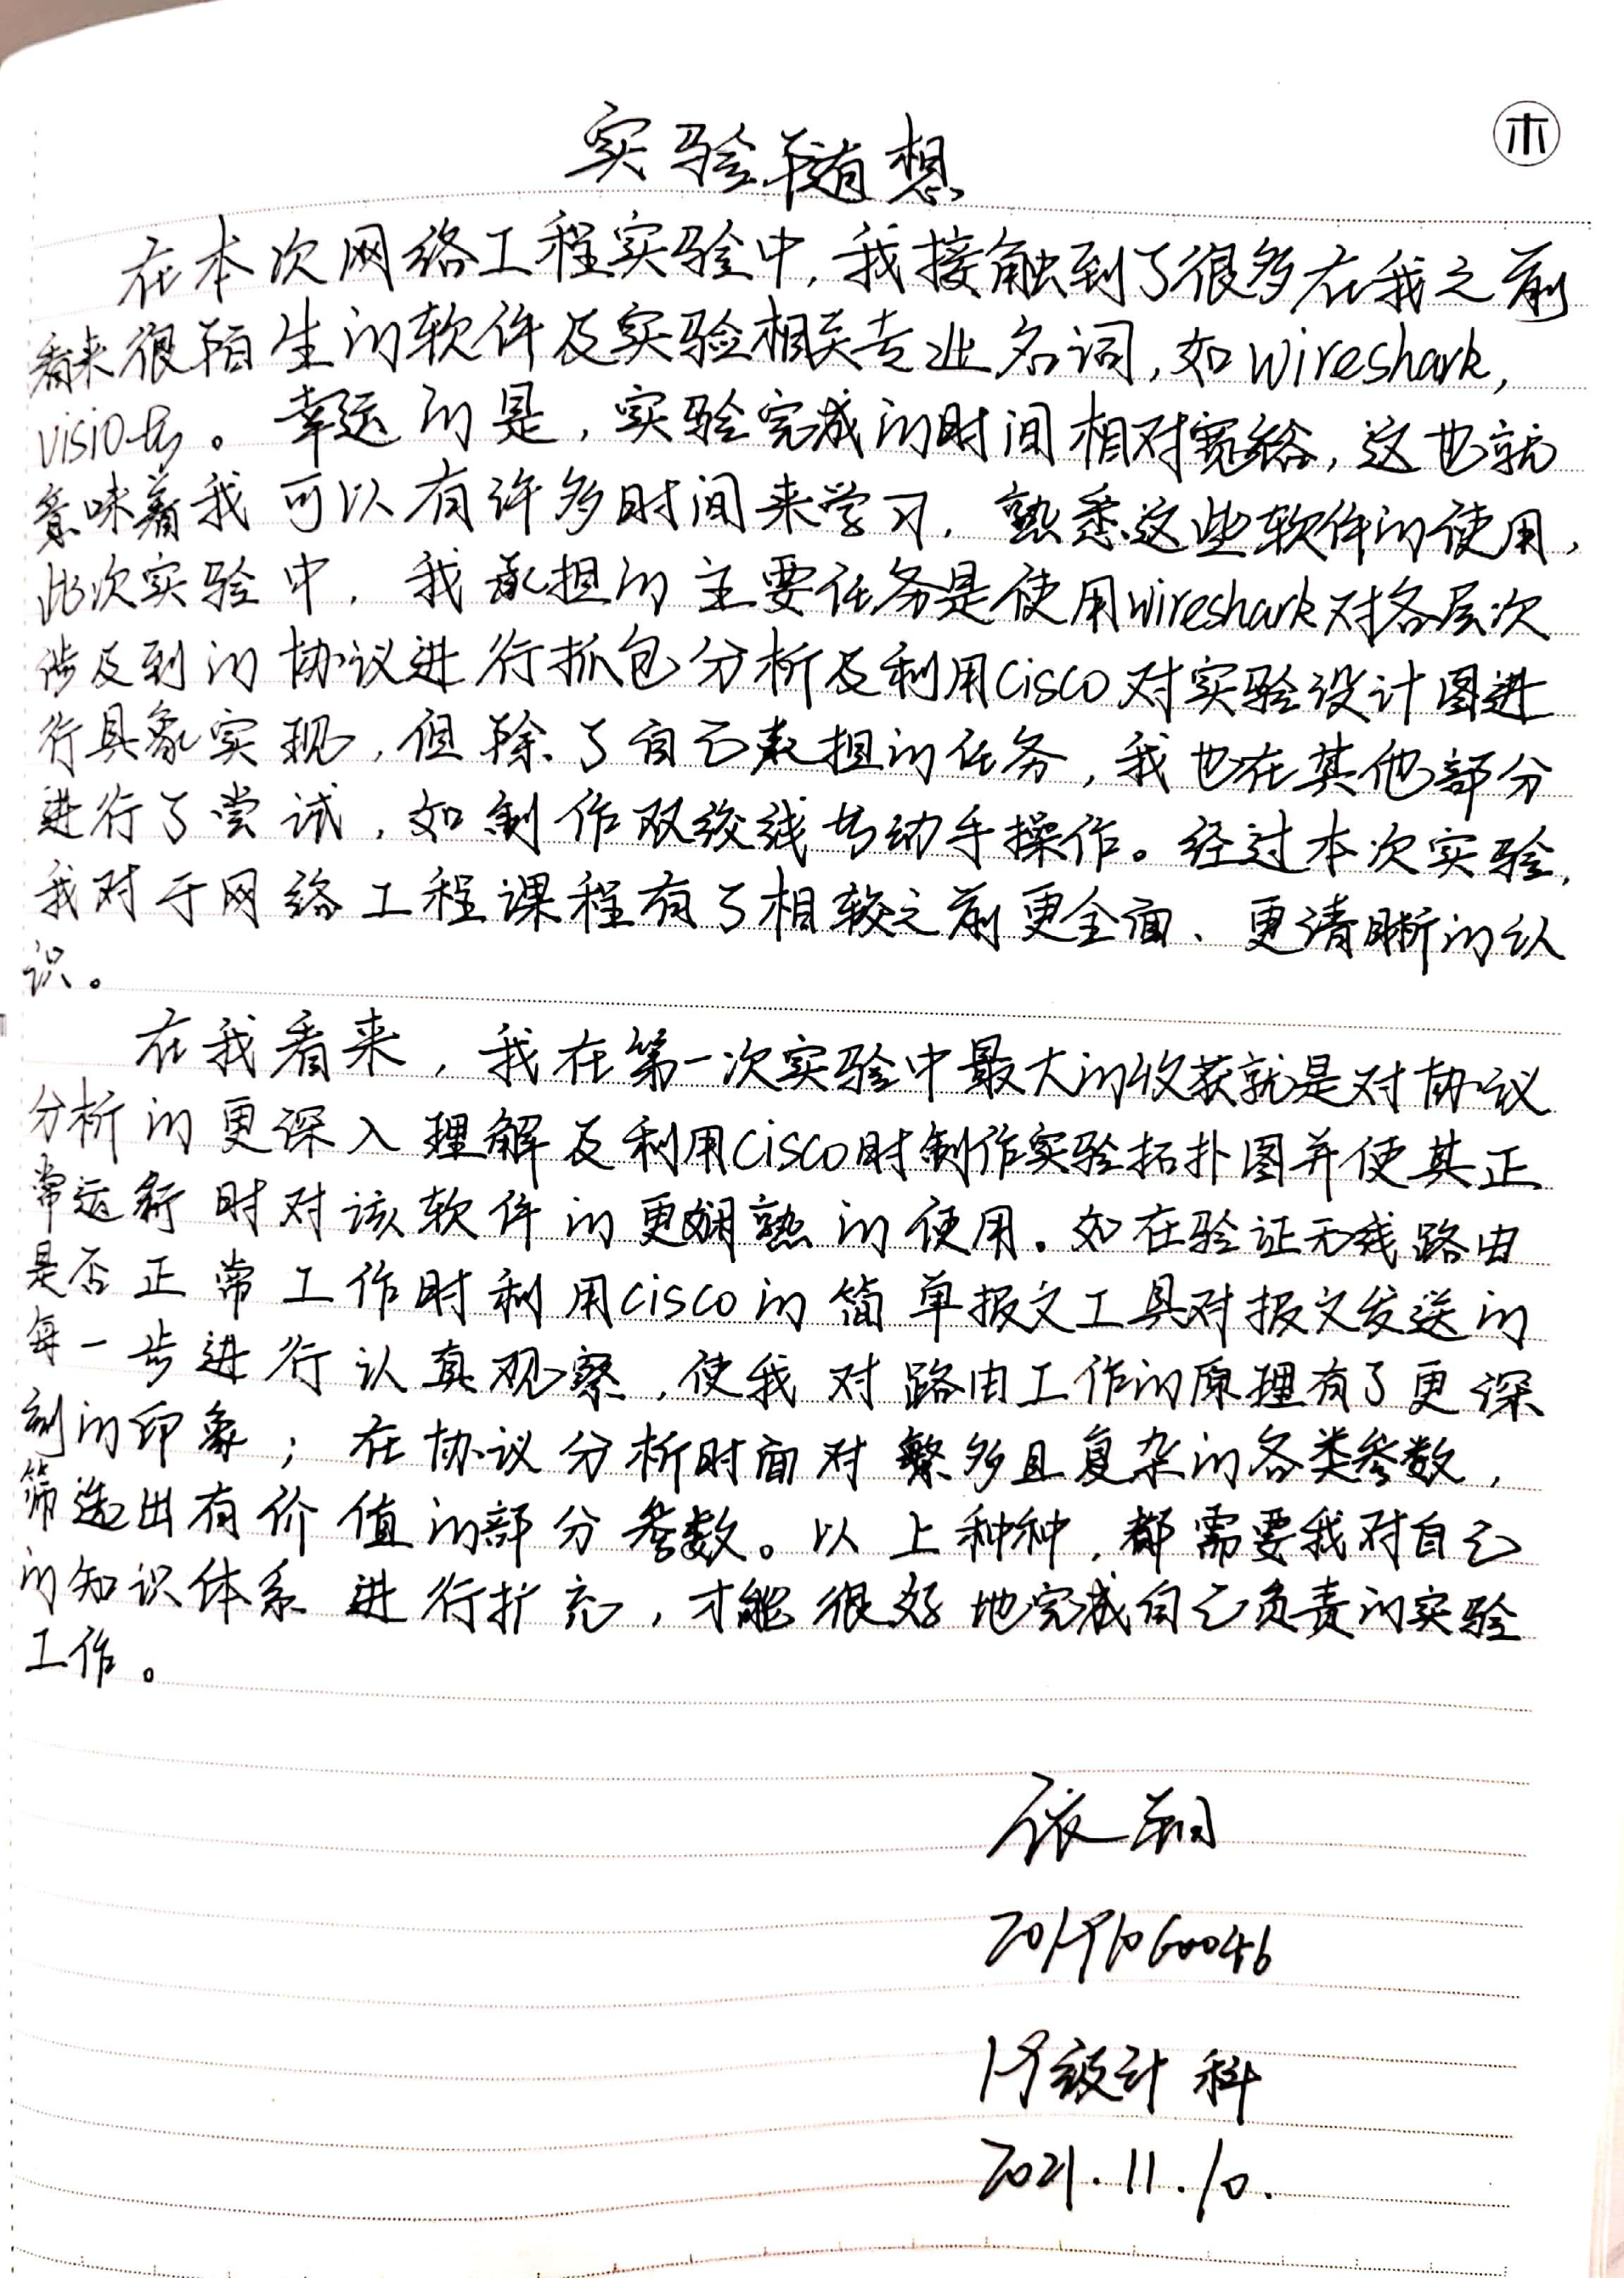 木
实验随想
在本次网络工程实验中，我接触到了很多在我之前
看来很陌生的软件及实验相关专业名词，如wireshark，
visio等。幸运的是，实验完成的时间相对宽裕，这也就
意味着我可以有许多时间来学习，熟悉这些软件的使用，
此次实验中，我承担的主要任务是使用wireshark对各层次
涉及到的协议进行抓包分析及利用cisco对实验设计图进
行具象实现，但除了自己承担的任务，我也在其他部分
进行了尝试，如制作双绞线等动手操作。经过本次实验，
我对于网络工程课程有了相较之前更全面、更清晰的认
识。
在我看来，我在第一次实验中最大的收获就是对协议
分析的更深入理解及利用cisco时制作实验拓扑图并使其正
常运行时对该软件的更娴熟的使用。如在验证无线路由
是否正常工作时利用cisco的简单报文工具对报文发送的
每一步进行认真观察，使我对路由工作的原理有了更深
刻的印象；在协议分析时面对繁多且复杂的各类参数，
筛选出有价值的部分参数。以上种种，都需要我对自己
的知识体系进行扩充，才能很好地完成自己负责的实验
工作。
20191060046
19级计科
2021.11.10.